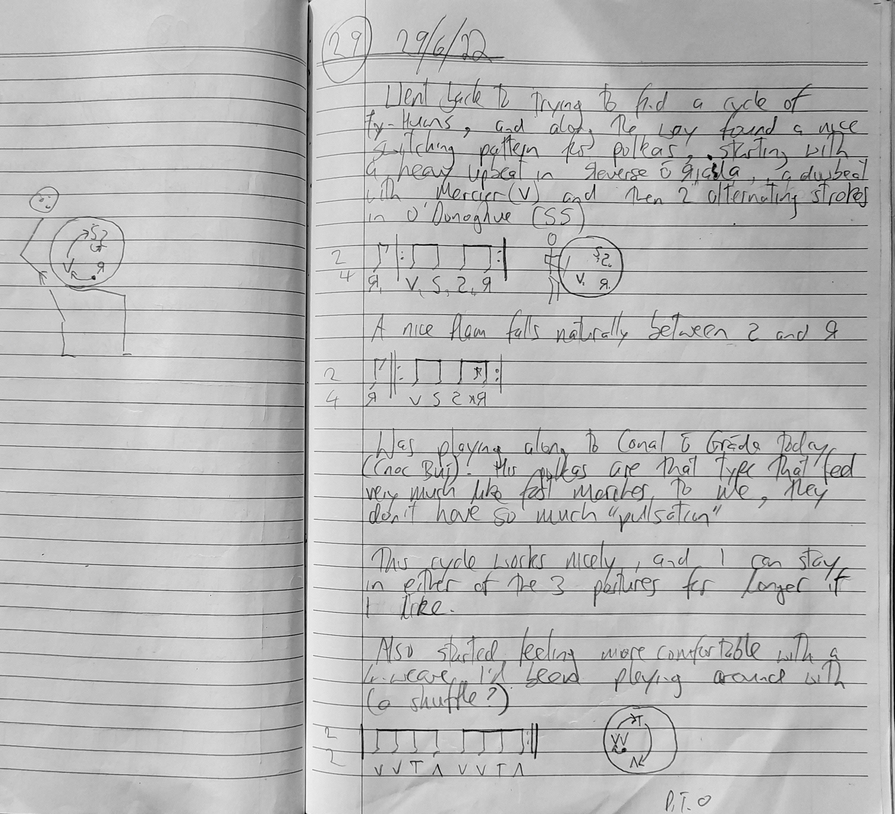 29 29/6/22
Went back to trying to find a cycle of
and along the way found a nice
switching pattern for polkas, starting with
a heavy upbeat in reverse Ó Riada, a dwbeat
with Mercier (V) and then 2 alternating strokes
in O'Donoghue (SS)
2
4 Я V S 2 Я
A nice flam falls naturally between 2 and Я
2
4 Я V S 2 x Я
Was playing along to Conal Ó Gráda today
(Cnoc Buí). His polkas are that type that feel
very much like fast marches to me, they
don't have so much "pulsation"
This cycle works nicely, and I can stay
in either of the 3 postures for longer if
I like.
Also started feeling more comfortable with a
I'd been playing around with
(a shuffle?)
2
2 V V T Λ V V T Λ
P.T.O